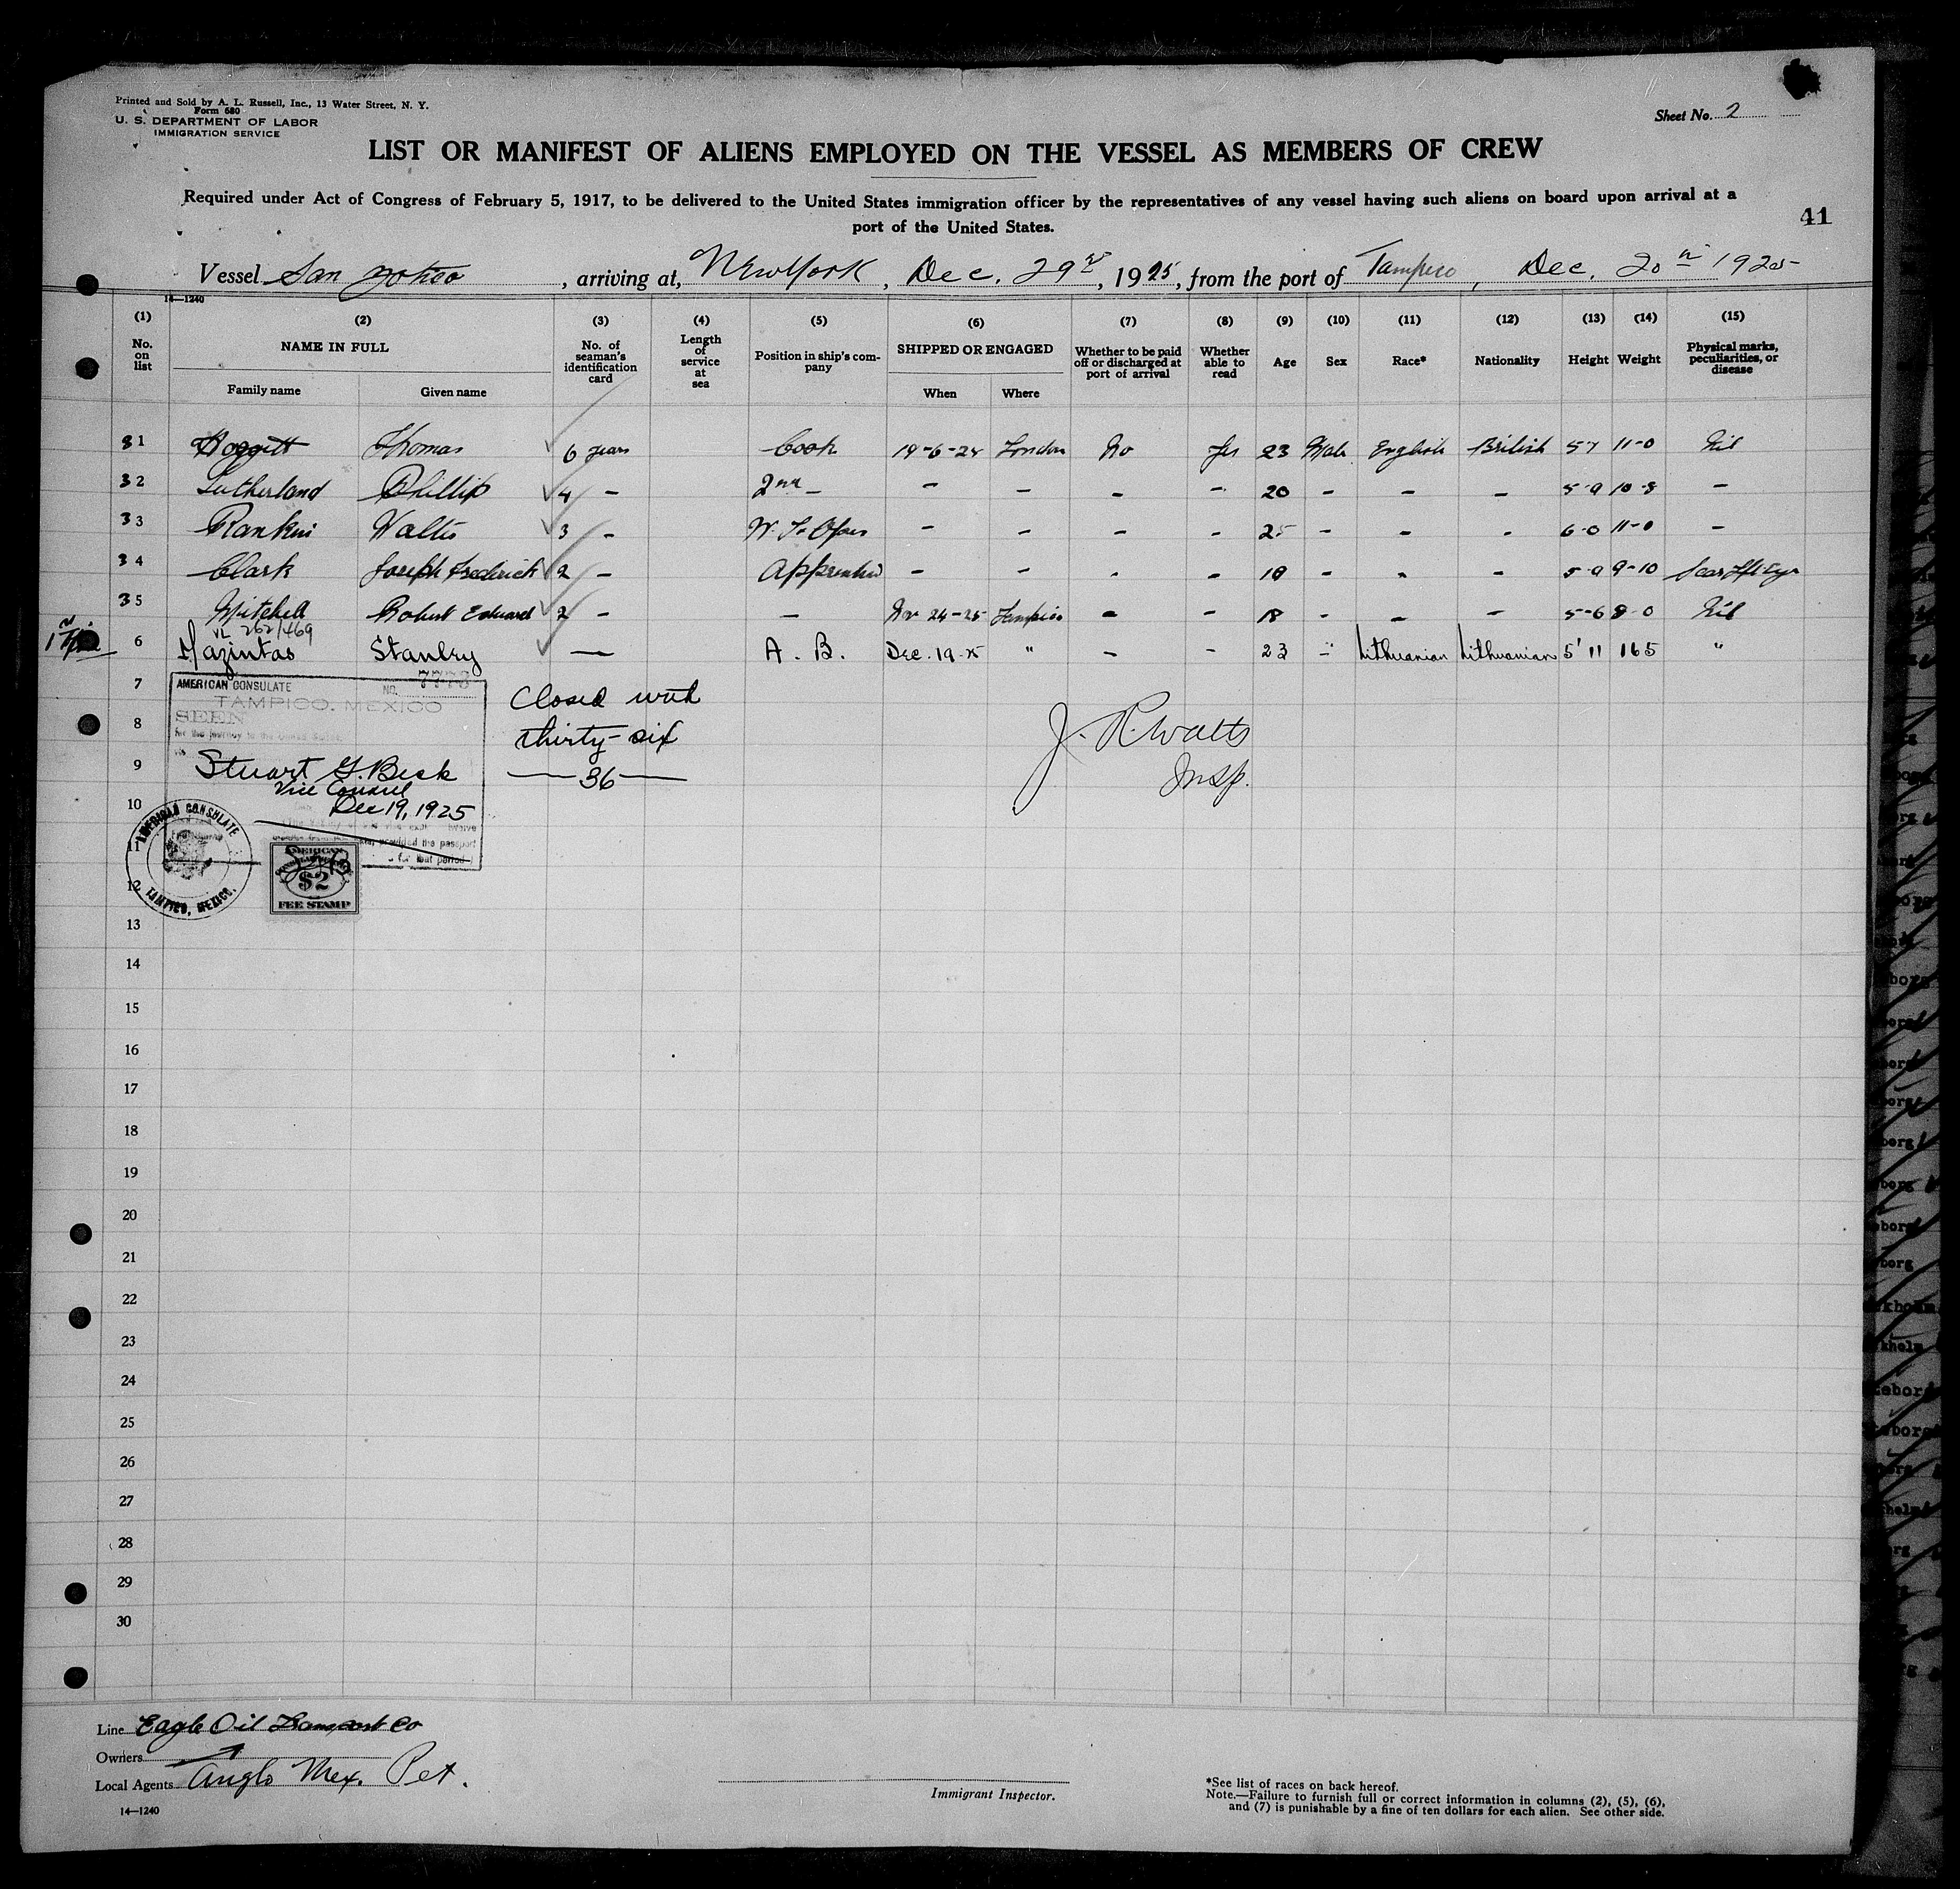 Printed and Sold by A. L. Russell, Inc., 13 Water Street, N. Y.
Form 680
U. S. DEPARTMENT OF LABOR
IMMIGRATION SERVICE
Sheet No. 2
LIST OR MANIFEST OF ALIENS EMPLOYED ON THE VESSEL AS MEMBERS OF CREW
Required under Act of Congress of February 5, 1917, to be delivered to the United States immigration officer by the representatives of any vessel having such aliens on board upon arrival at a
port of the United States.
41
Vessel San , arriving at, New York, Dec. 29, 1925, from the port of Tampico, Dec. 20 1925
14—1240
(1) (2) (3) (4) (5) (6) (7) (8) (9) (10) (11) (12) (13) (14) (15)
No. on list
NAME IN FULL
Family name Given name
No. of seaman's identification card
Length of service at sea
Position in ship's company
SHIPPED OR ENGAGED
When Where
Whether to be paid off or discharged at port of arrival
Whether able to read
Age Sex Race* Nationality Height Weight
Physical marks, peculiarities, or disease
31 Thomas 6 years Cook 19-6-24 London No Yes 23 Male English British 5-7 11-0 Nil
32 Sutherland Phillip 4 – 2nd – – – – – 20 – – – 5-9 10-8 –
33 Rankin Walter 3 – W. – – – – 25 – – – 6-0 11-0 –
34 Clark Joseph Frederick 2 – – – – – – – – 5-9 9-10 Scar
35 Mitchell Robert Edward 2 – – Nov 24-25 Tampico – – 18 – – – 5-6 8-0 Nil
VL 262/469
6 Stanley — A. B. Dec. 19-25 " – – 23 – Lithuanian Lithuanian 5' 11 165 "
7
8
9
10
11
12
13
14
15
16
17
18
19
20
21
22
23
24
25
26
27
28
29
30
AMERICAN CONSULATE NO. 7773
TAMPICO, MEXICO
SEEN
For the journey to the United States
Stuart G. Beck
Vice Consul
Dec 19, 1925
provided the passport
for that period
AMERICAN CONSULATE
TAMPICO, MEXICO.
AMERICAN
$2
FEE STAMP
Closed with
thirty-six
— 36 —
J. R. Watts
Insp.
Line Eagle Oil Transport Co
Owners
Local Agents Anglo Mex. Pet.
14—1240
Immigrant Inspector.
*See list of races on back hereof.
Note.—Failure to furnish full or correct information in columns (2), (5), (6),
and (7) is punishable by a fine of ten dollars for each alien. See other side.